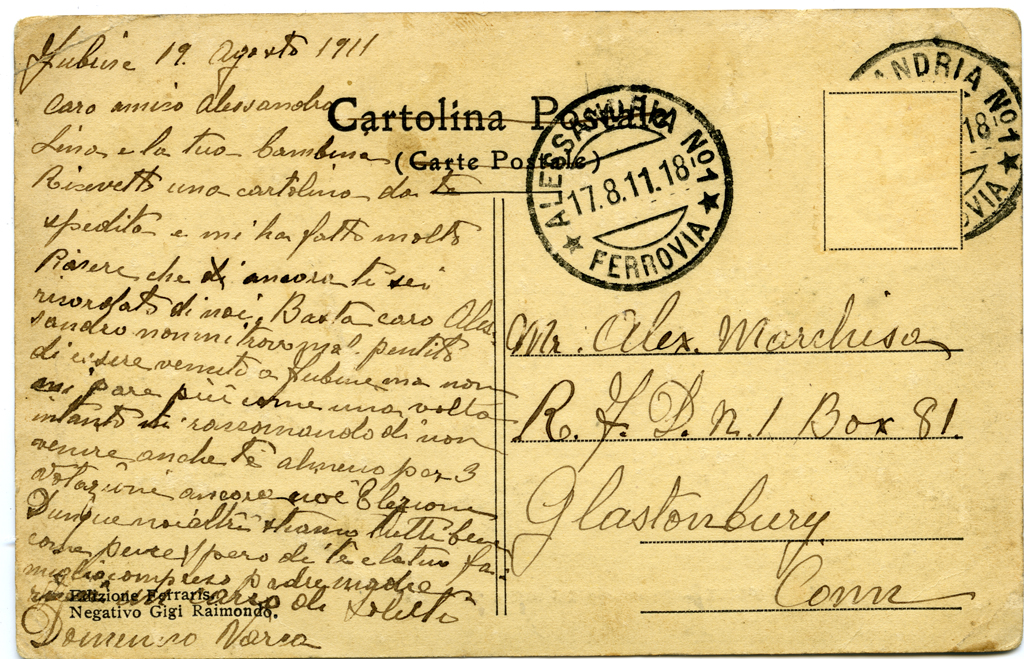 Fubine 19. Agosto 1911
Caro amico Alessandro
Lina e la tua bambina
Ricevetti una cartolina da te
spedita e mi ha fatto molto
Piacere che ancora ti sei
ricordato di noi. Basta caro Ales
sandro non mi trovo mal pentito
di essere venuto a Fubine ma non
mi pare più come una volta
intanto ti raccomando di non
venire anche te almeno per 3
votazioni ancora Elezioni
Dunque noi altri stiamo tutti bene
come pure spero di te e la tua fa
miglia compreso padre madre
di
Domenico Varca
Cartolina Postale
(Carte Postale)
ALESSANDRIA No1
17.8.11.18
FERROVIA
ANDRIA No1
18
OVIA
Mr. Alex. Marchisa
R. F. D. N. 1 Box 81.
Glastonbury
Conn
Edizione Ferraris.
Negativo Gigi Raimondo.